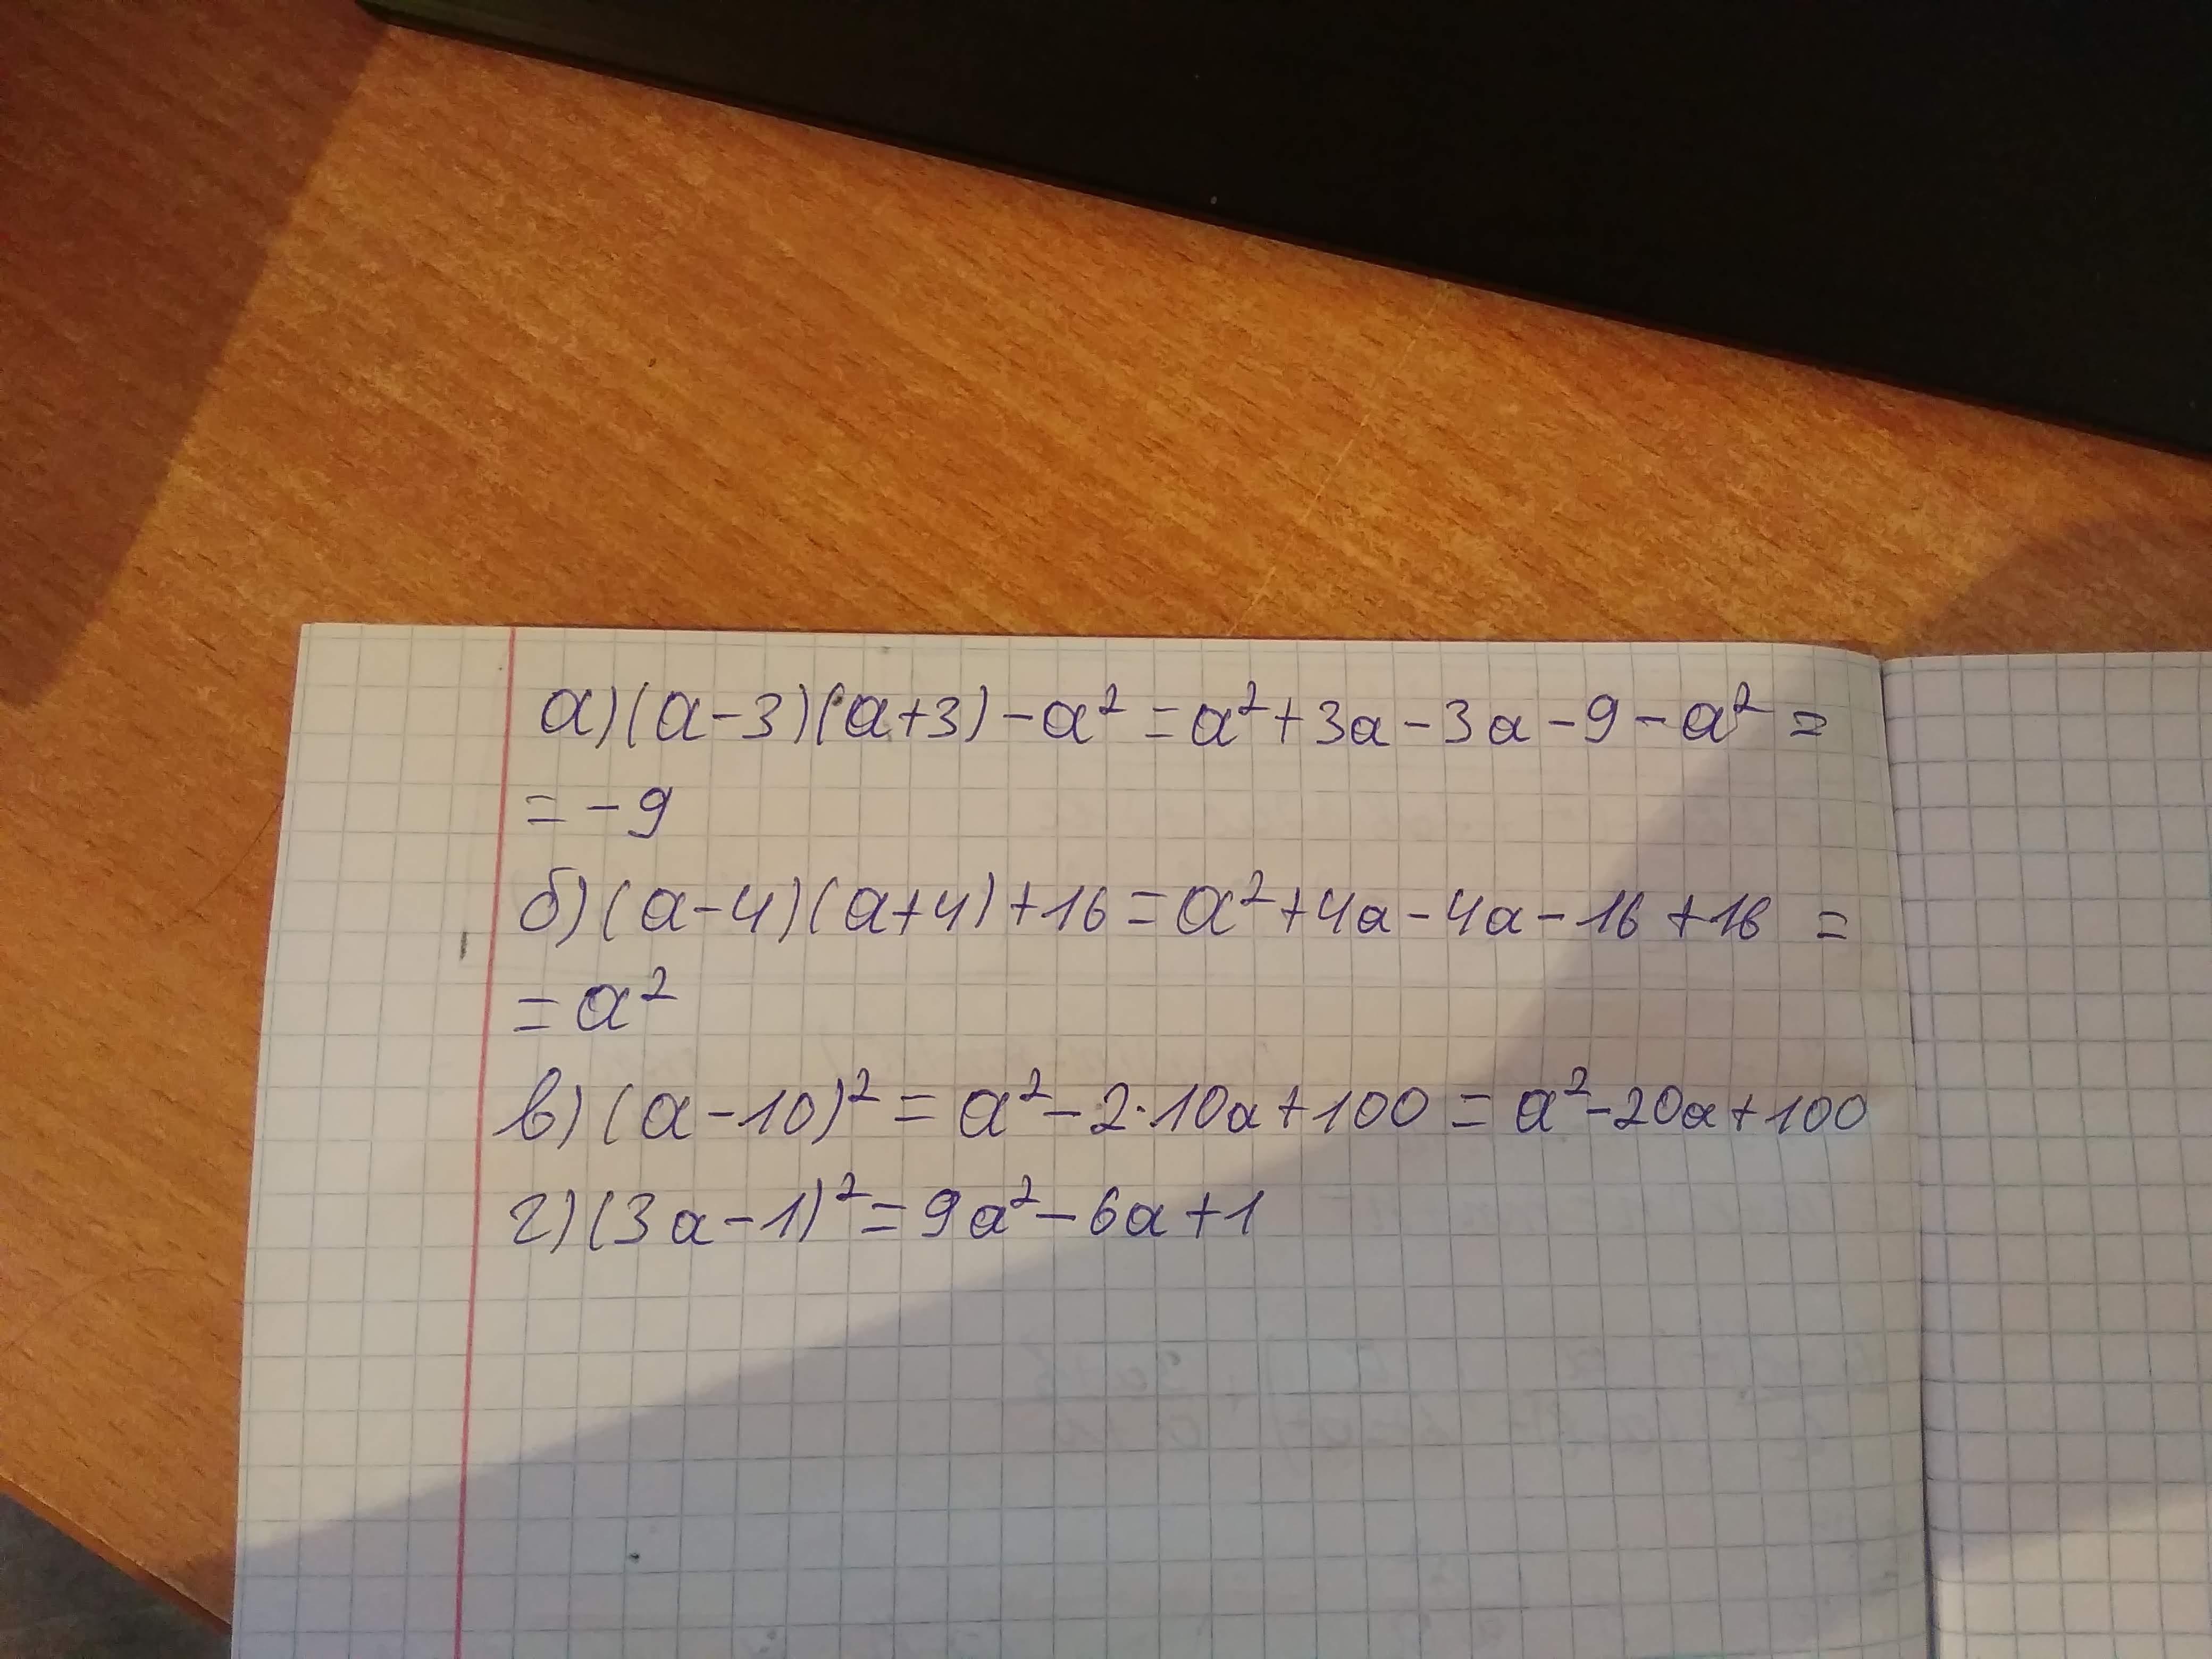 а) (a-3)(a+3) - a² = a² + 3a - 3a - 9 - a² =
= -9
б) (a-4)(a+4) + 16 = a² + 4a - 4a - 16 + 16 =
= a²
в) (a-10)² = a² - 2·10a + 100 = a² - 20a + 100
г) (3a-1)² = 9a² - 6a + 1